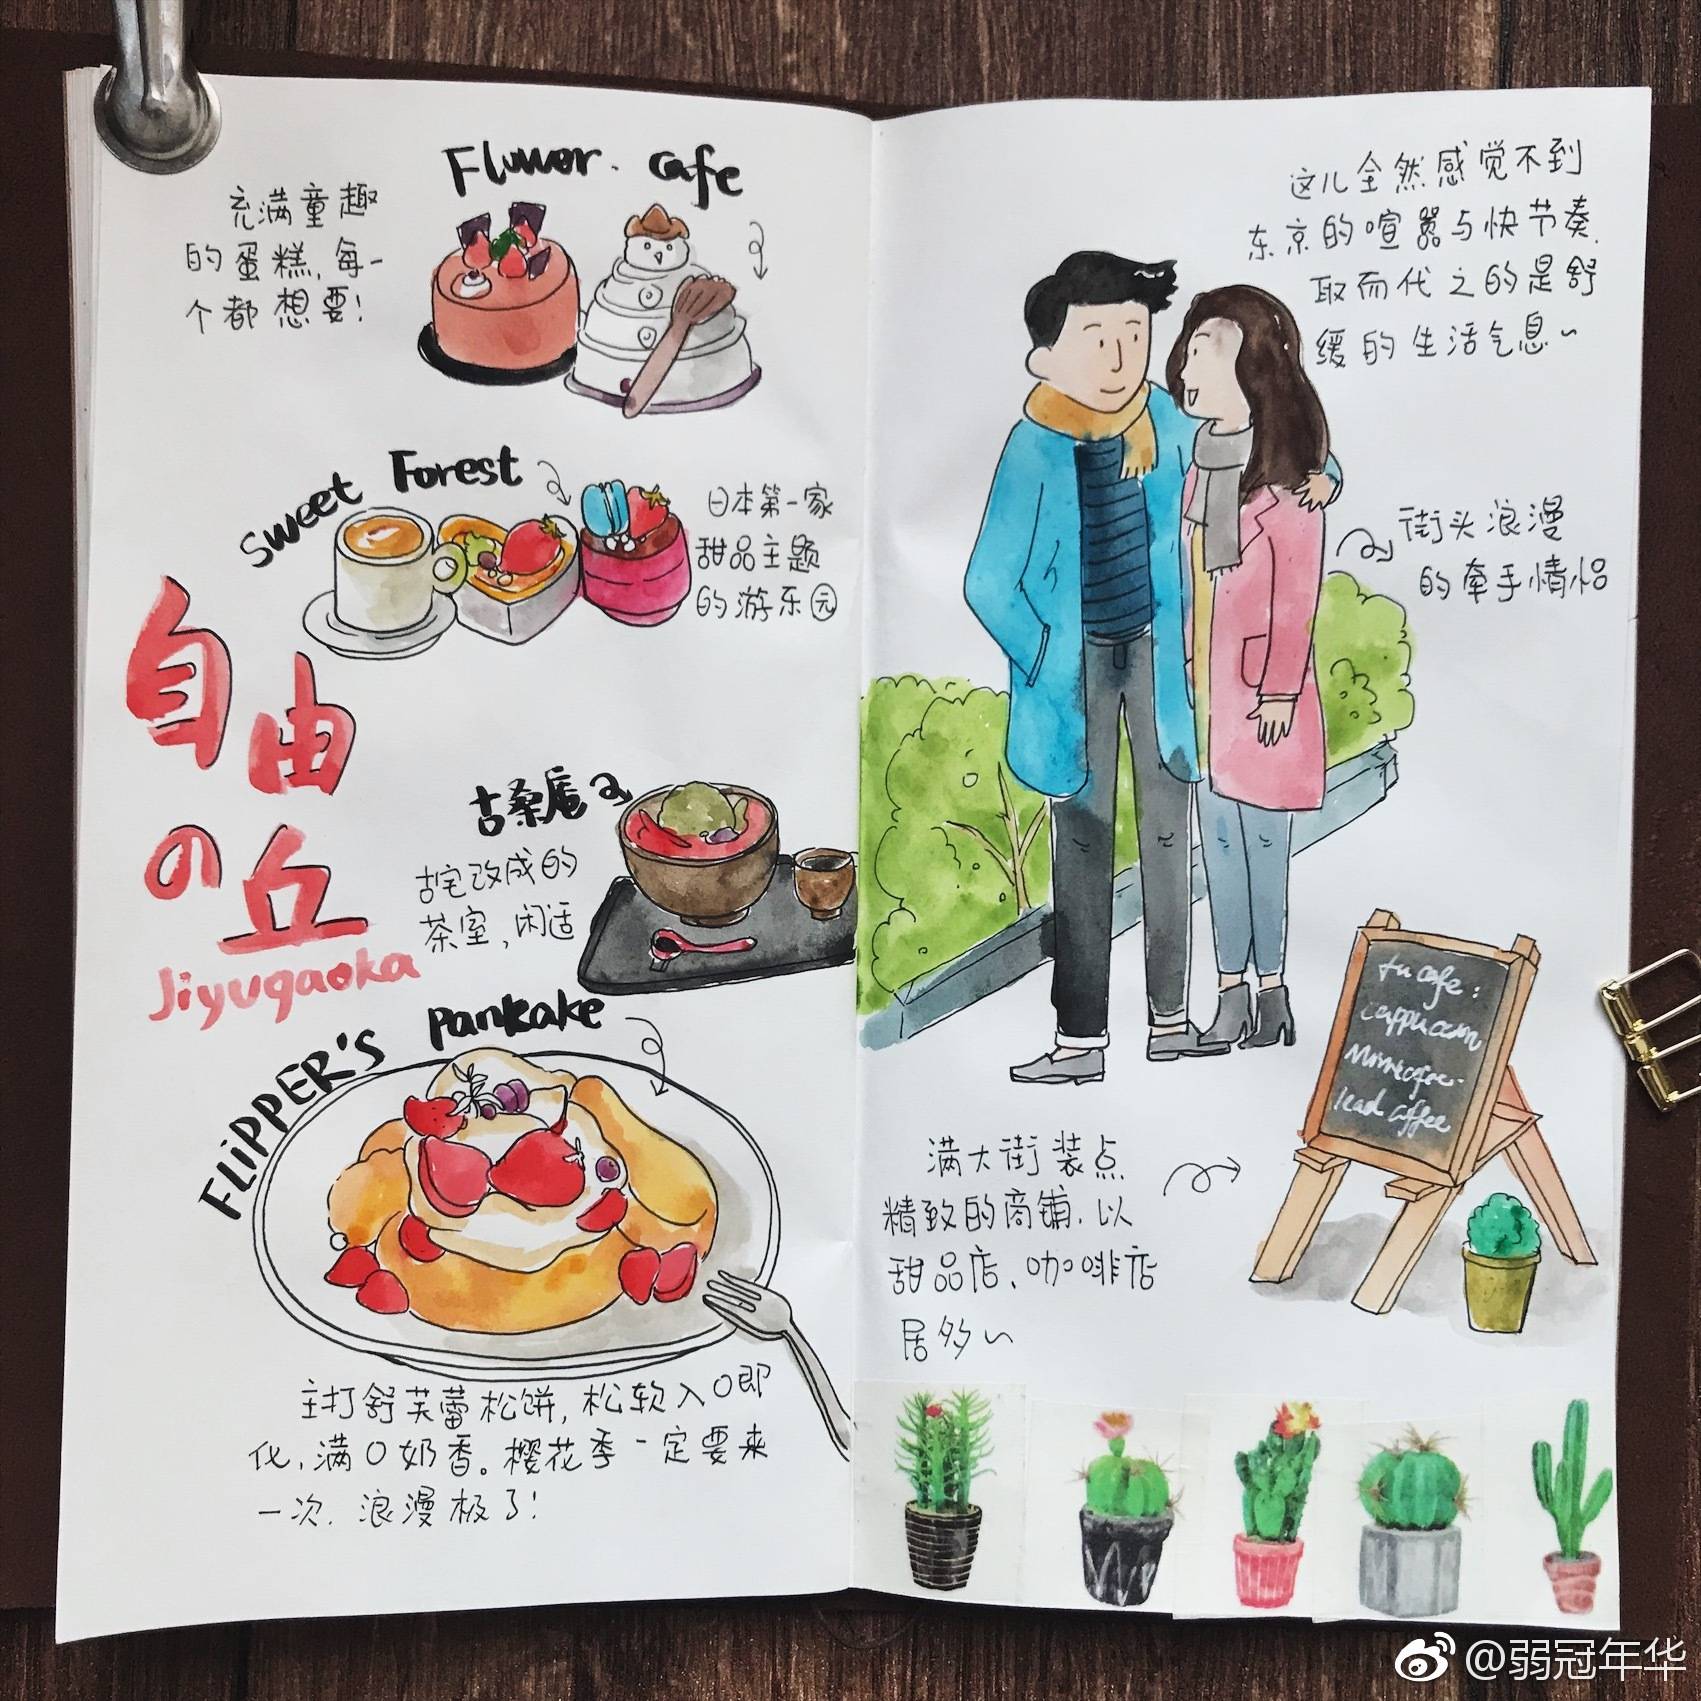 Flower. cafe
充满童趣
的蛋糕,每一
个都想要!
Sweet Forest
日本第一家
甜品主题
的游乐园
自由
の丘
Jiyugaoka
古桑庵
古宅改成的
茶室,闲适
FLiPPER'S pankake
主打舒芙蕾松饼,松软入口即
化,满口奶香。樱花季一定要来
一次.浪漫极了!
这儿全然感觉不到
东京的喧嚣与快节奏.
取而代之的是舒
缓的生活气息~
街头浪漫
的牵手情侣
cafe:
满大街装点
精致的商铺.以
甜品店、咖啡店
居多~
@弱冠年华